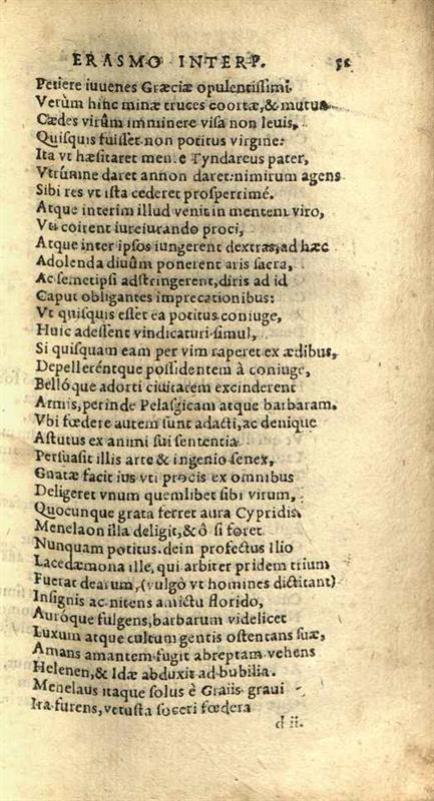 ERASMO INTERP.
Petiere iuuenes Græciæ opulentissimi.
Verùm hinc minæ truces coortæ, & mutua
Cædes virûm imminere visa non leuis,
Quisquis fuisset non potitus virgine:
Ita vt hæsitaret mente Tyndareus pater,
Vtrúmne daret annon daret: nimirum agens
Sibi res vt ista cederet prosperrimé.
Atque interim illud venit in mentem viro,
Vti coirent iureiurando proci,
Atque inter ipsos iungerent dextras, ad hæc
Adolenda diuûm ponerent aris sacra,
Ac semetipsi adstringerent, diris ad id
Caput obligantes imprecationibus:
Vt quisquis esset ea potitus coniuge,
Huic adessent vindicaturi simul,
Si quisquam eam per vim raperet ex ædibus,
Depelleréntque possidentem à coniuge,
Bellóque adorti ciuitatem excinderent
Armis, perinde Pelasgicam atque barbaram.
Vbi fœdere autem sunt adacti, ac denique
Astutus ex animi sui sententia
Persuasit illis arte & ingenio senex,
Gnatæ facit ius vti procis ex omnibus
Deligeret vnum quemlibet sibi virum,
Quocunque grata ferret aura Cypridis.
Menelaon illa deligit, & ô si foret
Nunquam potitus. dein profectus Ilio
Lacedæmona ille, qui arbiter pridem trium
Fuerat dearum, (vulgò vt homines dictitant)
Insignis ac nitens amictu florido,
Auróque fulgens, barbarum videlicet
Luxum atque cultum gentis ostentans suæ,
Amans amantem fugit abreptam vehens
Helenen, & Idæ abduxit ad bubilia.
Menelaus itaque solus è Graiis graui
Ira furens, vetusta soceri fœdera
d ii.